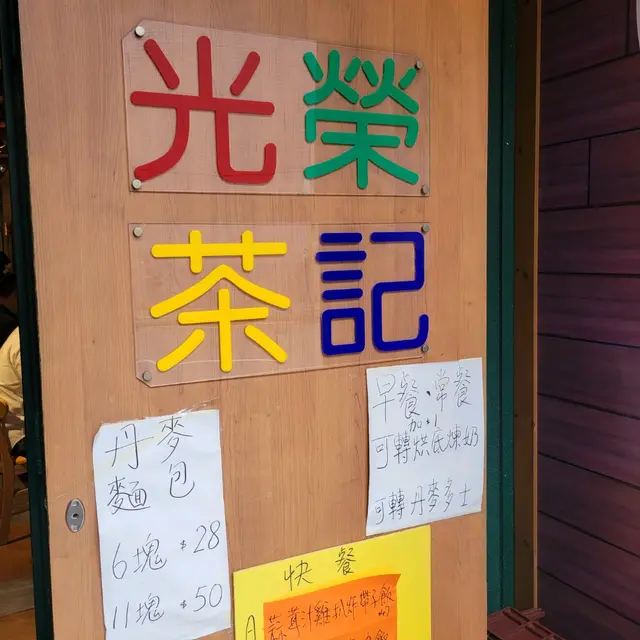 光榮
茶記
丹麥
麵包
6塊 $28
11塊 $50
早餐、常餐
加$1
可轉烘底煉奶
可轉丹麥多士
快餐
蒜茸汁雞扒好帶子飯